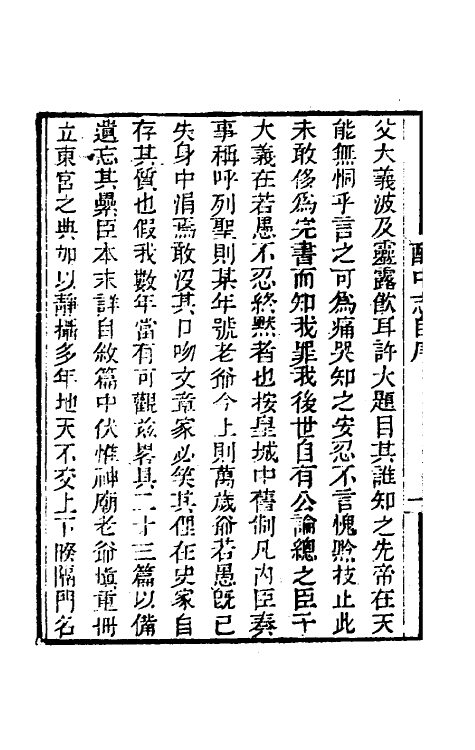 父大義波及靈露飲耳許大題目其誰知之先帝在天
能無恫乎言之可爲痛哭知之安忍不言愧黔技止此
未敢侈爲完書而知我罪我後世自有公論總之臣子
大義在若愚不忍終默者也按皇城中舊制凡內臣奏
事稱呼列聖則某年號老爺今上則萬歲爺若愚旣已
失身中涓焉敢沒其口吻文章家必笑其俚在史家自
存其質也假我數年當有可觀茲畧具二十三篇以備
遺忘其纍臣本末詳自敘篇中伏惟神廟老爺愼重冊
立東宮之典加以靜攝多年地天不交上下睽隔門名
酌中志自序
一